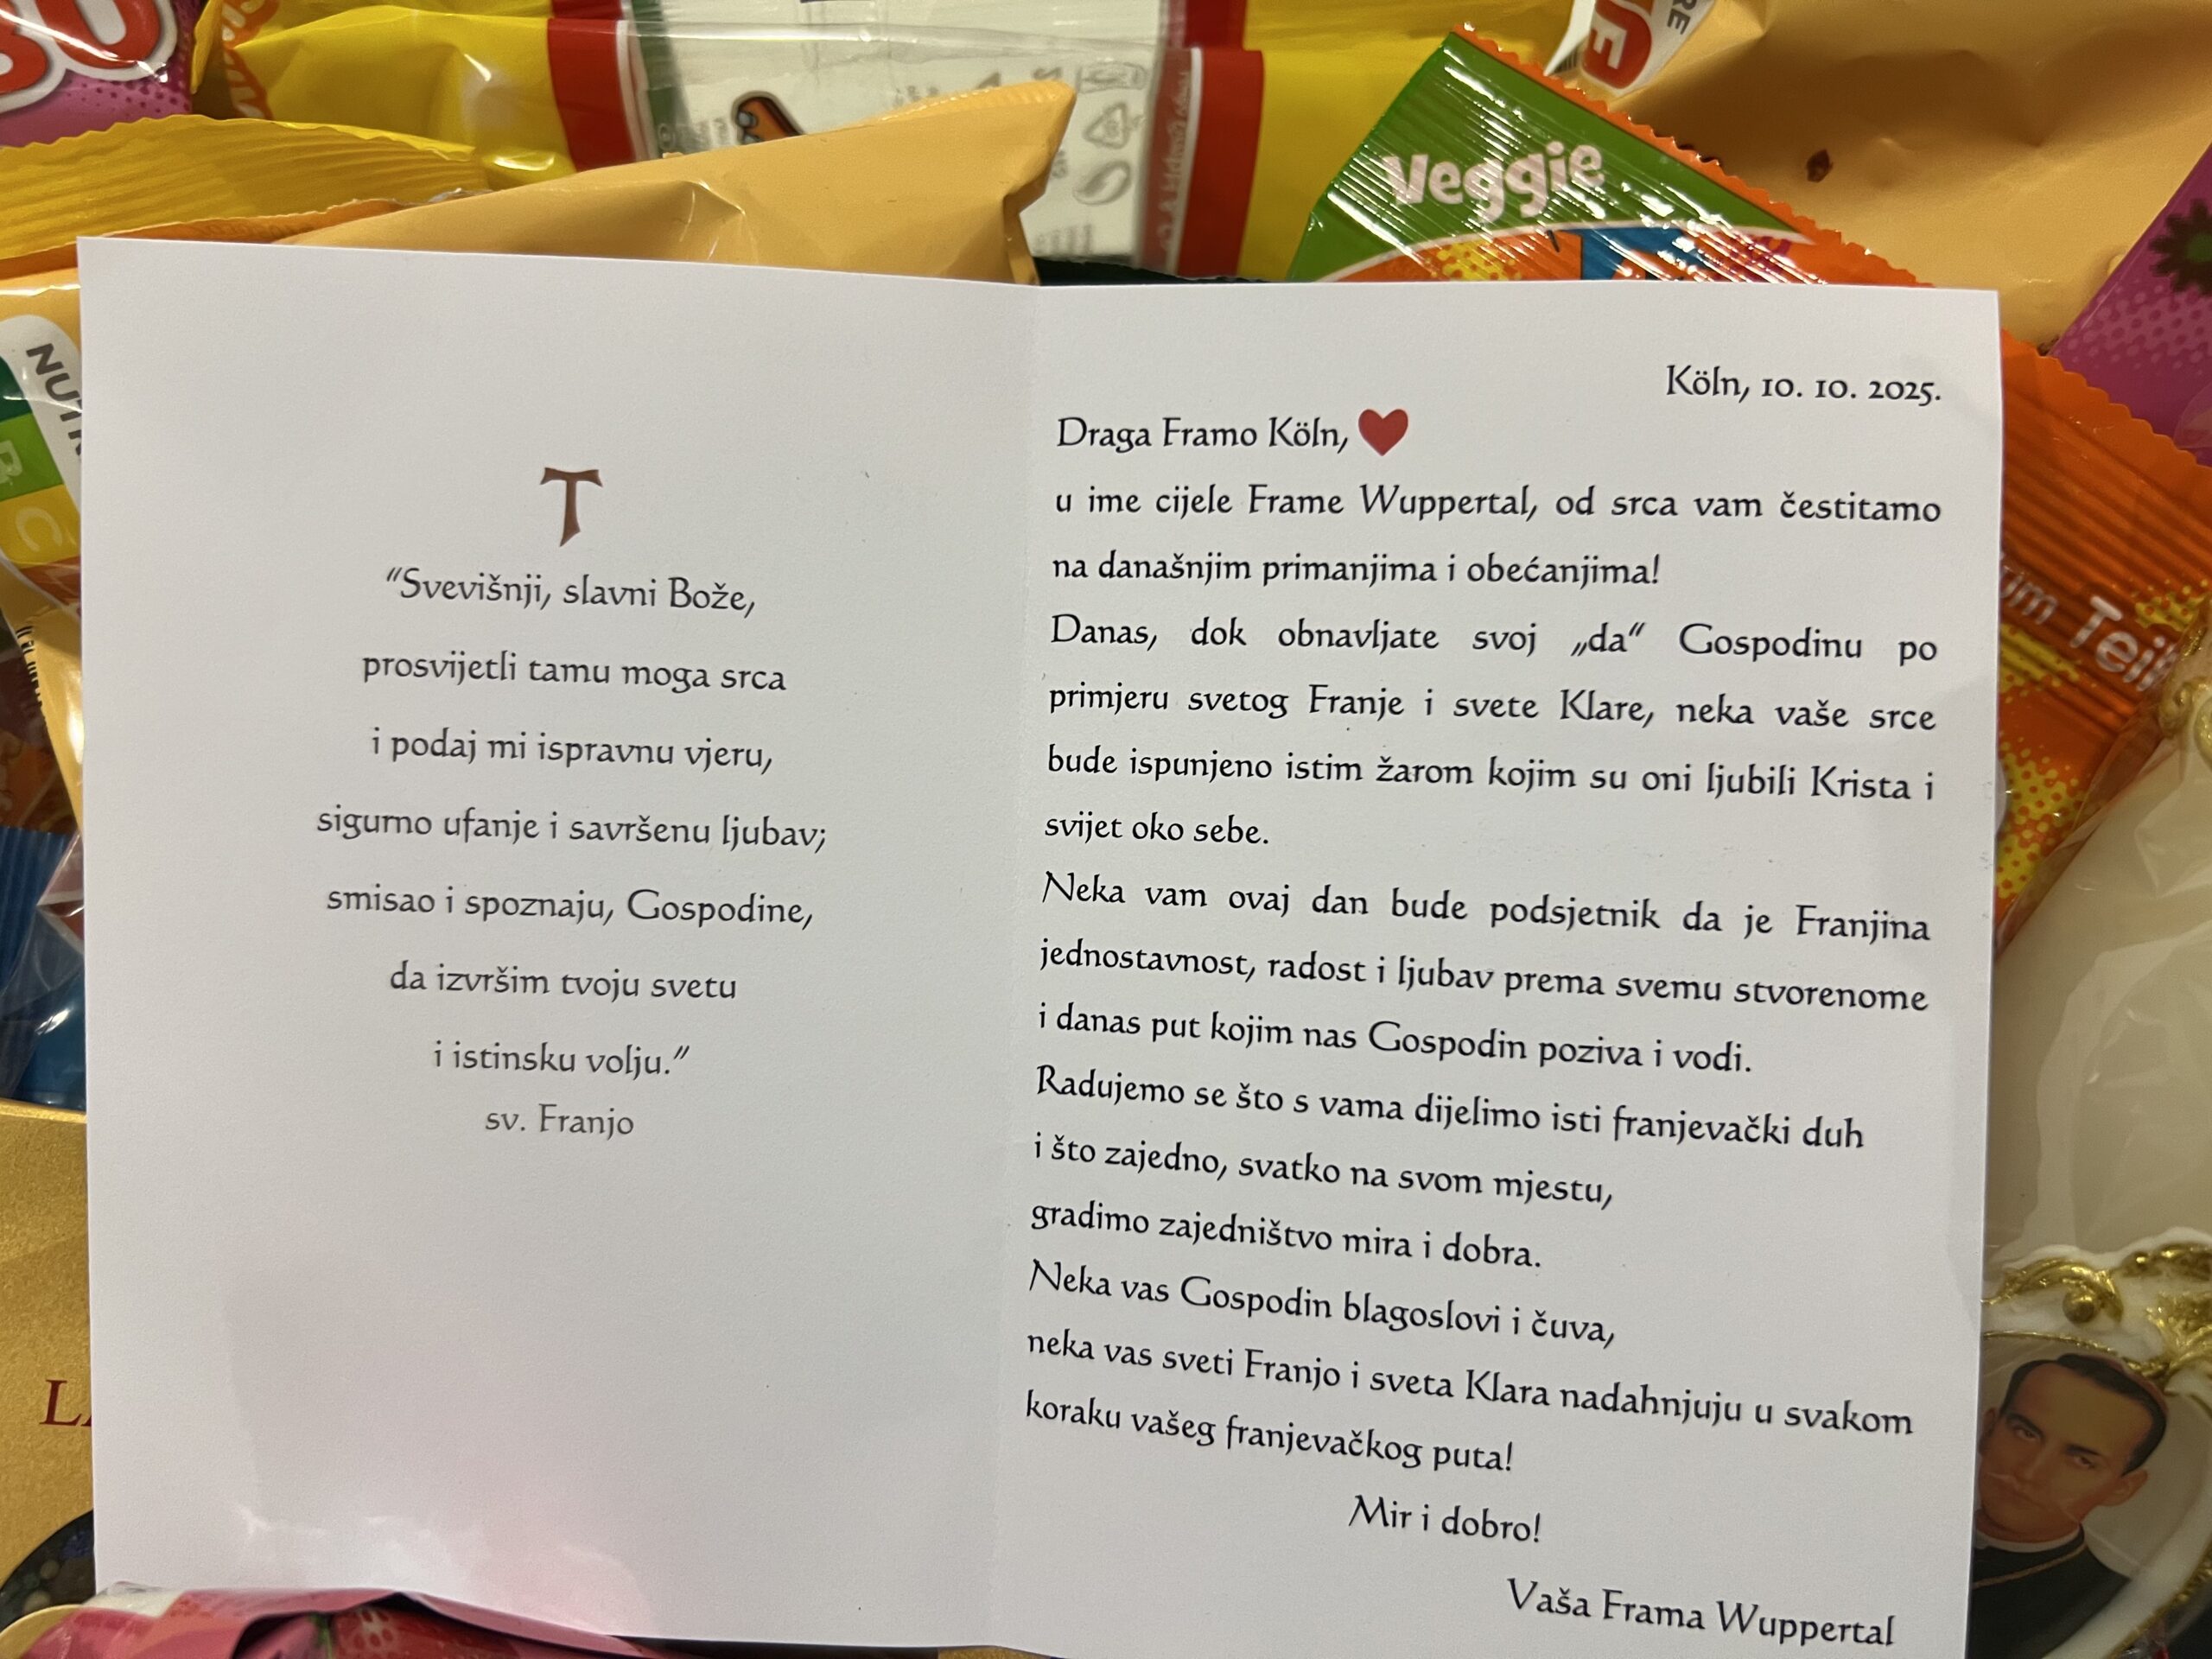 Veggie
NUTRI
B
C
Teil
"Svevišnji, slavni Bože,
prosvijetli tamu moga srca
i podaj mi ispravnu vjeru,
sigurno ufanje i savršenu ljubav;
smisao i spoznaju, Gospodine,
da izvršim tvoju svetu
i istinsku volju."
sv. Franjo
Köln, 10. 10. 2025.
Draga Framo Köln, ❤
u ime cijele Frame Wuppertal, od srca vam čestitamo
na današnjim primanjima i obećanjima!
Danas, dok obnavljate svoj „da“ Gospodinu po
primjeru svetog Franje i svete Klare, neka vaše srce
bude ispunjeno istim žarom kojim su oni ljubili Krista i
svijet oko sebe.
Neka vam ovaj dan bude podsjetnik da je Franjina
jednostavnost, radost i ljubav prema svemu stvorenome
i danas put kojim nas Gospodin poziva i vodi.
Radujemo se što s vama dijelimo isti franjevački duh
i što zajedno, svatko na svom mjestu,
gradimo zajedništvo mira i dobra.
Neka vas Gospodin blagoslovi i čuva,
neka vas sveti Franjo i sveta Klara nadahnjuju u svakom
koraku vašeg franjevačkog puta!
Mir i dobro!
Vaša Frama Wuppertal